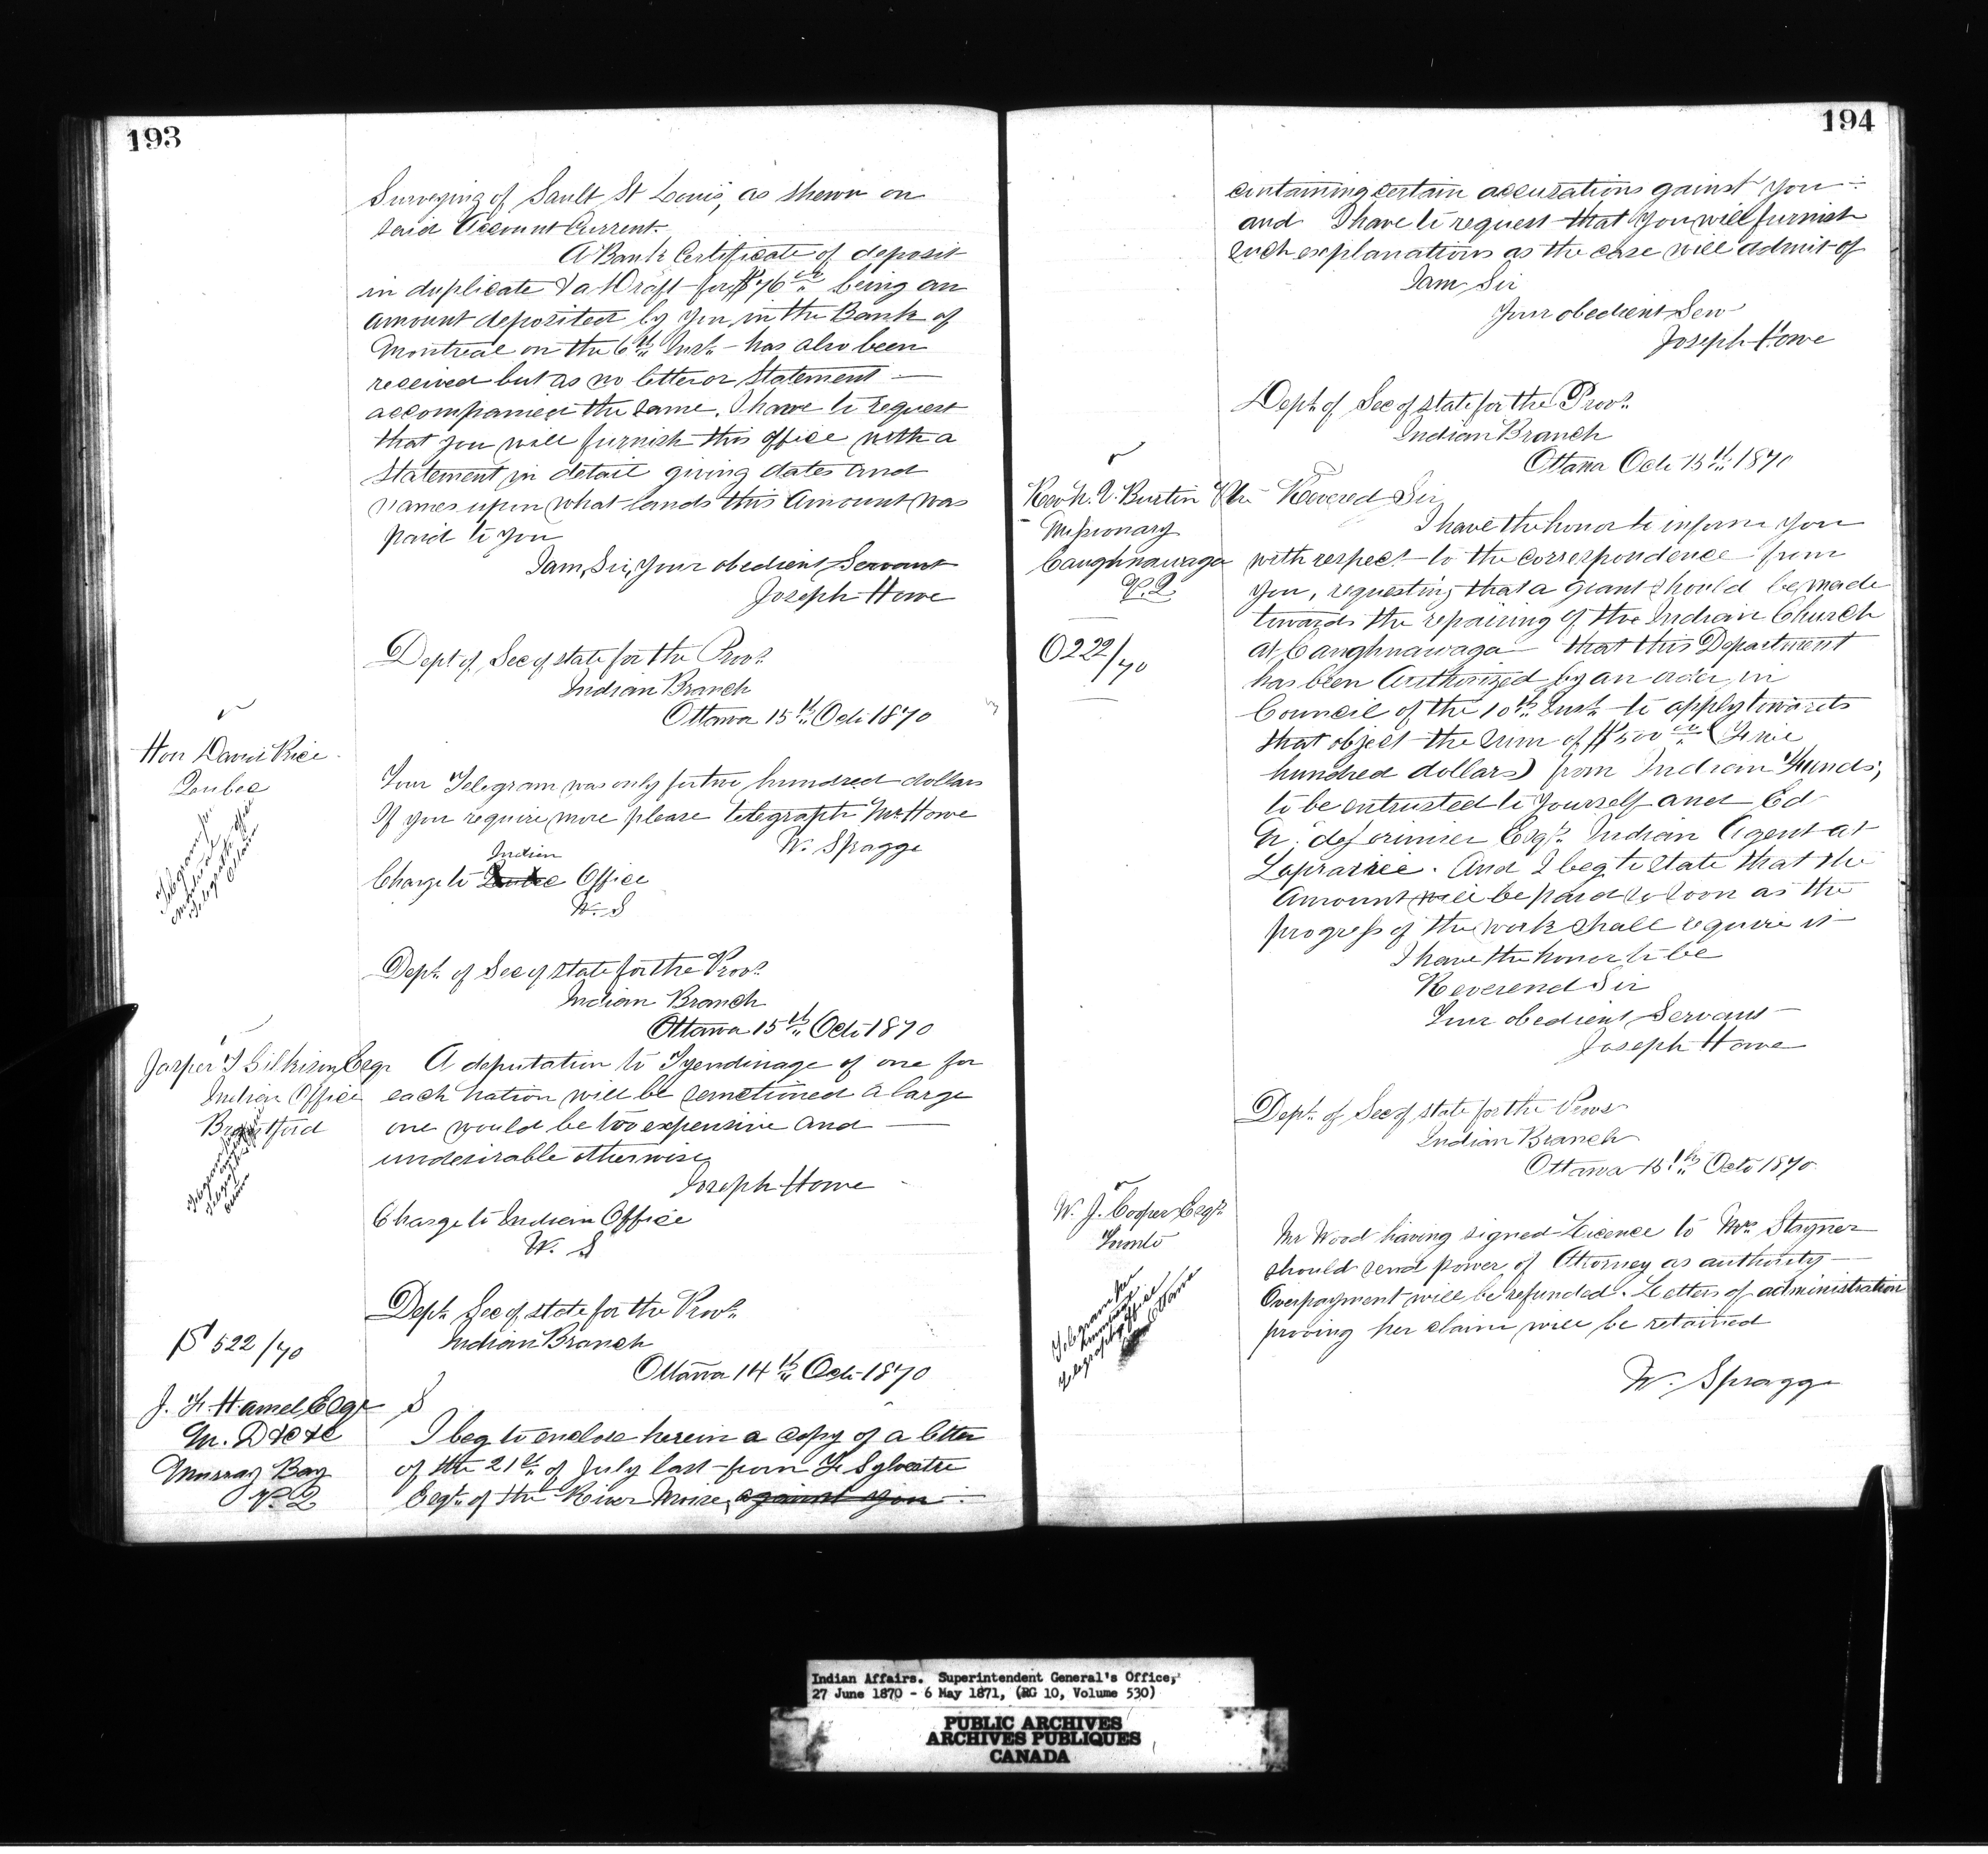 193
Surveying of Sault St Louis, as shewn on
said Account Current.
A Bank Certificate of deposit
in duplicate & a Draft for $76 being an
amount deposited by you in the Bank of
Montreal on the 6th Inst - has also been
received but as no letter or Statement —
accompanied the same. I have to request
that you will furnish this office with a
Statement in detail giving dates and
names upon what lands this Amount was
paid to you
I am, Sir, Your obedient Servant
Joseph Howe
Dept of Sec of state for the Provs
Indian Branch
Ottawa 15th Oct 1870
Hon David Price
Quebec
Telegram per
Montreal
Telegraph Office
Ottawa
Your Telegram was only for two hundred dollars
If you require more please telegraph Mr Howe
W. Spragge
Indian
Charge to Quebec Office
W. S
Dept of Sec of state for the Provs
Indian Branch
Ottawa 15th Oct 1870
Jasper T Gilkison Esqr
Indian Office
Brantford
A deputation to Tyendinage of one for
each nation will be sanctioned a large
one would be too expensive and —
undesirable otherwise
Joseph Howe
Charge to Indian Office
W. S
Dept Sec of state for the Provs
Indian Branch
Ottawa 14th Oct 1870
522/70
J. F. Hamel Esqr
Murray Bay
P. Q
S
I beg to enclose herein a copy of a letter
of the 21st of July last from F. Sylvestre
Esqr of the River Moise, against you
194
containing certain accusations gainst you :
and I have to request that you will furnish
such explanations as the case will admit of
I am Sir
Your obedient Serv
Joseph Howe
Dept of Sec of state for the Provs
Indian Branch
Ottawa Oct 15th 1870
Rev N. V. Burtin Ptre
Missionary
Caughnawaga
P. Q.
O222/70
Revered Sir
I have the honor to inform you
with respect to the correspondence from
you, requesting that a grant should be made
towards the repairing of the Indian Church
at Caughnawaga — that this Department
has been Authorized by an order in
Council of the 10th Inst to apply towards
that object the sum of $500 (Five
hundred dollars) from Indian Funds,
to be entrusted to yourself and Ed
N. deLorimier Esqr Indian Agent at
Laprairie. And I beg to state that the
Amount will be paid so soon as the
progress of the work shall require it
I have the honor to be
Reverend Sir
Your obedient Servant
Joseph Howe
Dept of Sec of state for the Provs
Indian Branch
Ottawa 15th Octo 1870
W. J. Cooper Esqr
Toronto
Telegram per
Montreal
Telegraph Office
Ottawa
Mr Wood having signed Licence to Mrs Stayner
should send power of Attorney as authority —
Overpayment will be refunded. Letters of administration
proving her claim will be retained
W. Spragge
Indian Affairs. Superintendent General's Office,
27 June 1870 - 6 May 1871, (RG 10, Volume 530)
PUBLIC ARCHIVES
ARCHIVES PUBLIQUES
CANADA